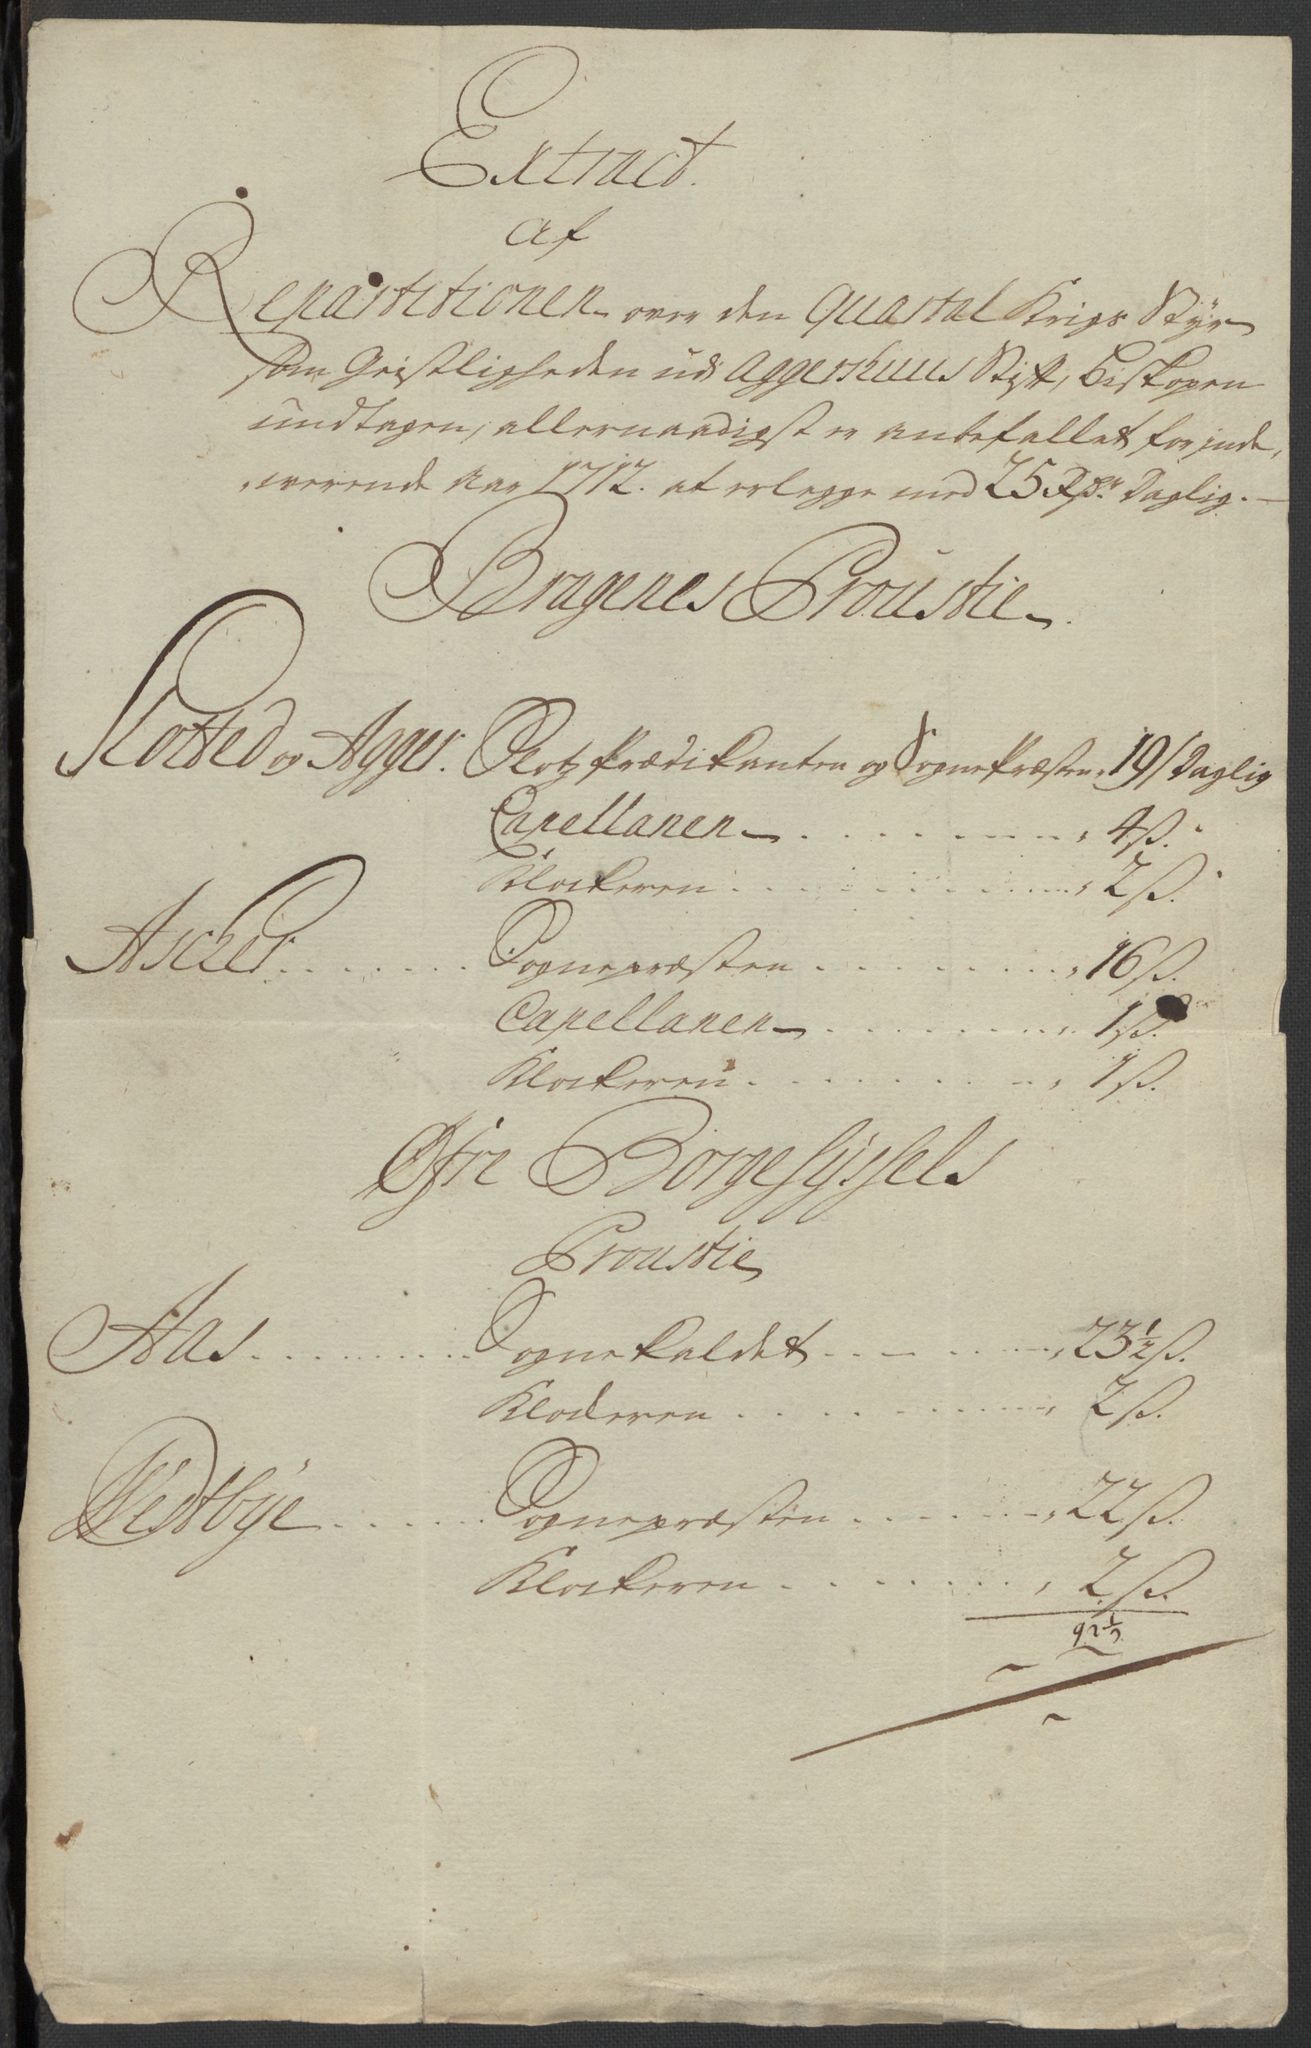 Extract
af
Repartitionen over den Quartal Krigs Styr
som Geistligheden udi Aggershuus Stift, Biskopen
undtagen, allernaadigst er anbefallet for inde-
werende Aar 1712. at erlegge med 25 Rdr. Daglig.
Bragenes Proustie
Slotted og Agger. Slotz Prædikanten og Sogne Præsten 19 ß Daglig
Capellanen 4 ß.
Klockeren 2 ß.
Ascher Sognepræsten 16 ß.
Capellanen 1 ß.
Klockeren 1 ß.
Øfre Borgesyssels
Proustie
Aas Sognekaldet 23½ ß.
Klockeren 2 ß.
Westbye Sognepræsten 22 ß.
Klockeren 2 ß.
92½